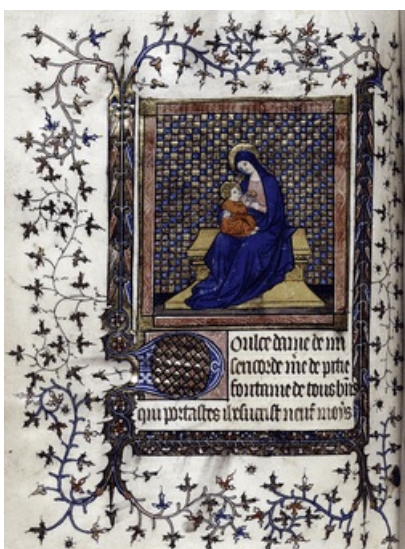 Doulce dame de mi
sericorde mere de pitie
fontaine de tous biens
qui portastes ihesucrist neuf moys